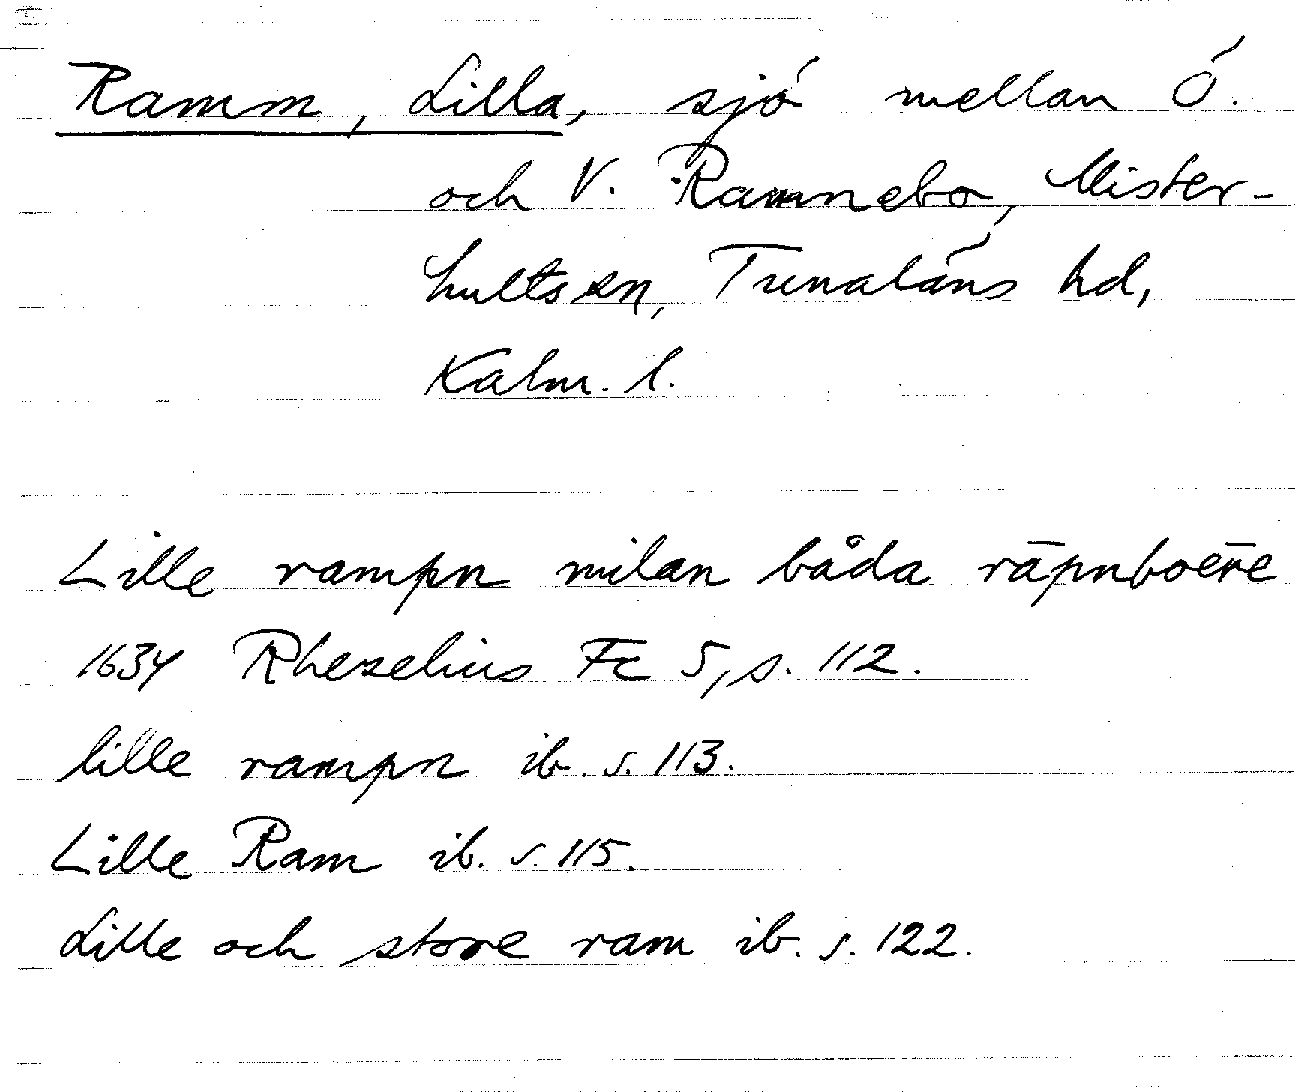 Ramm, Lilla, sjö mellan Ö.
och V. Ramnebo, Mister-
hults sn, Tunaläns hd,
Kalm. l.
Lille rampn milan båda rāpnboēre
1634 Rhezelius Fc 5, s. 112.
lille rampn ib. s. 113.
Lille Ram ib. s. 115.
Lille och store ram ib. s. 122.